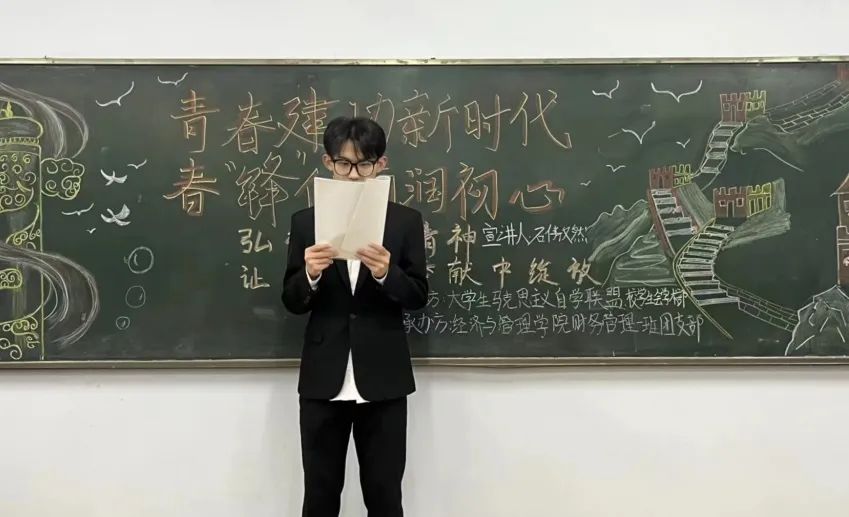 青春建功新时代
春"锋"润初心
弘 青神 宣讲人石
让 献中绽放
方:大学生马克思主义自学联盟 校学生会
承办方:经济与管理学院财务管理一班团支部